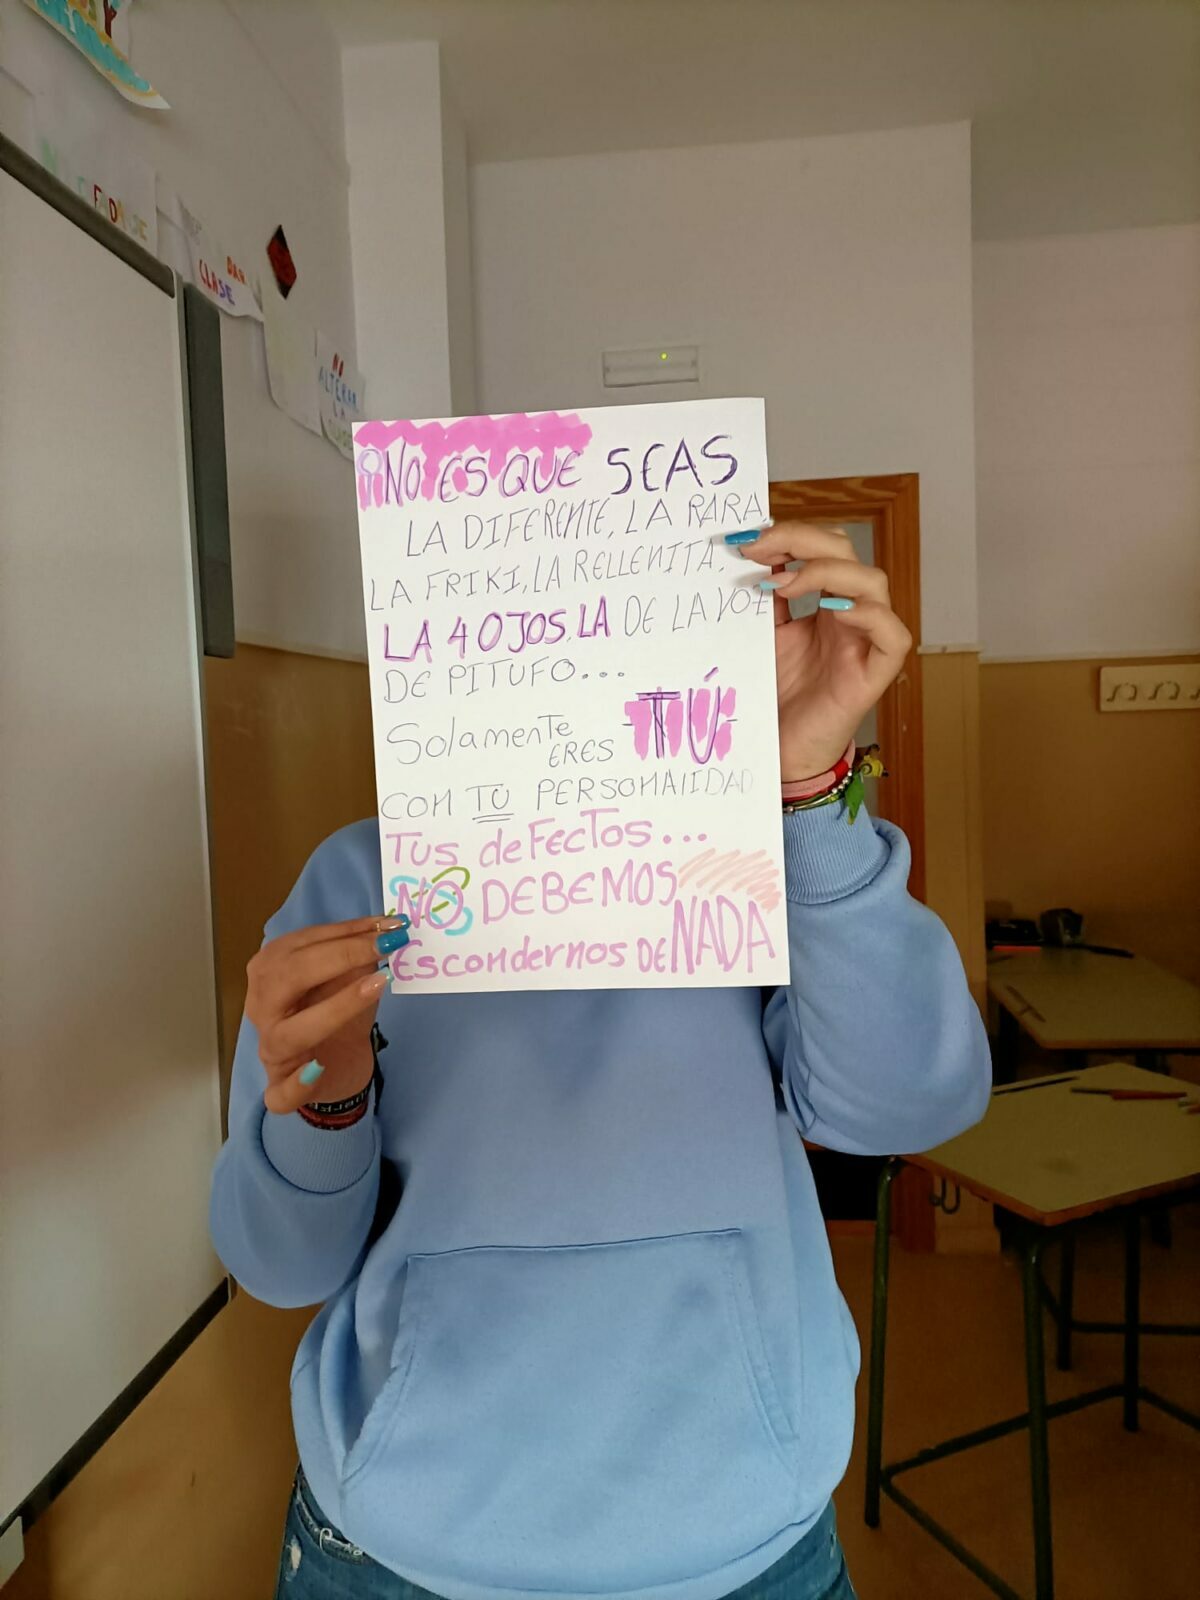 FADARSE
DAR
CLASE
NO
ALTERAR
LA
CLASE
¡NO ES QUE SEAS
LA DIFERENTE, LA RARA,
LA FRIKI, LA RELLENITA,
LA 4 OJOS, LA DE LA VOZ
DE PITUFO...
Solamente
ERES TÚ
CON TU PERSONALIDAD
TUS deFecTos...
NO DEBEMOS
EscondernosDE NADA